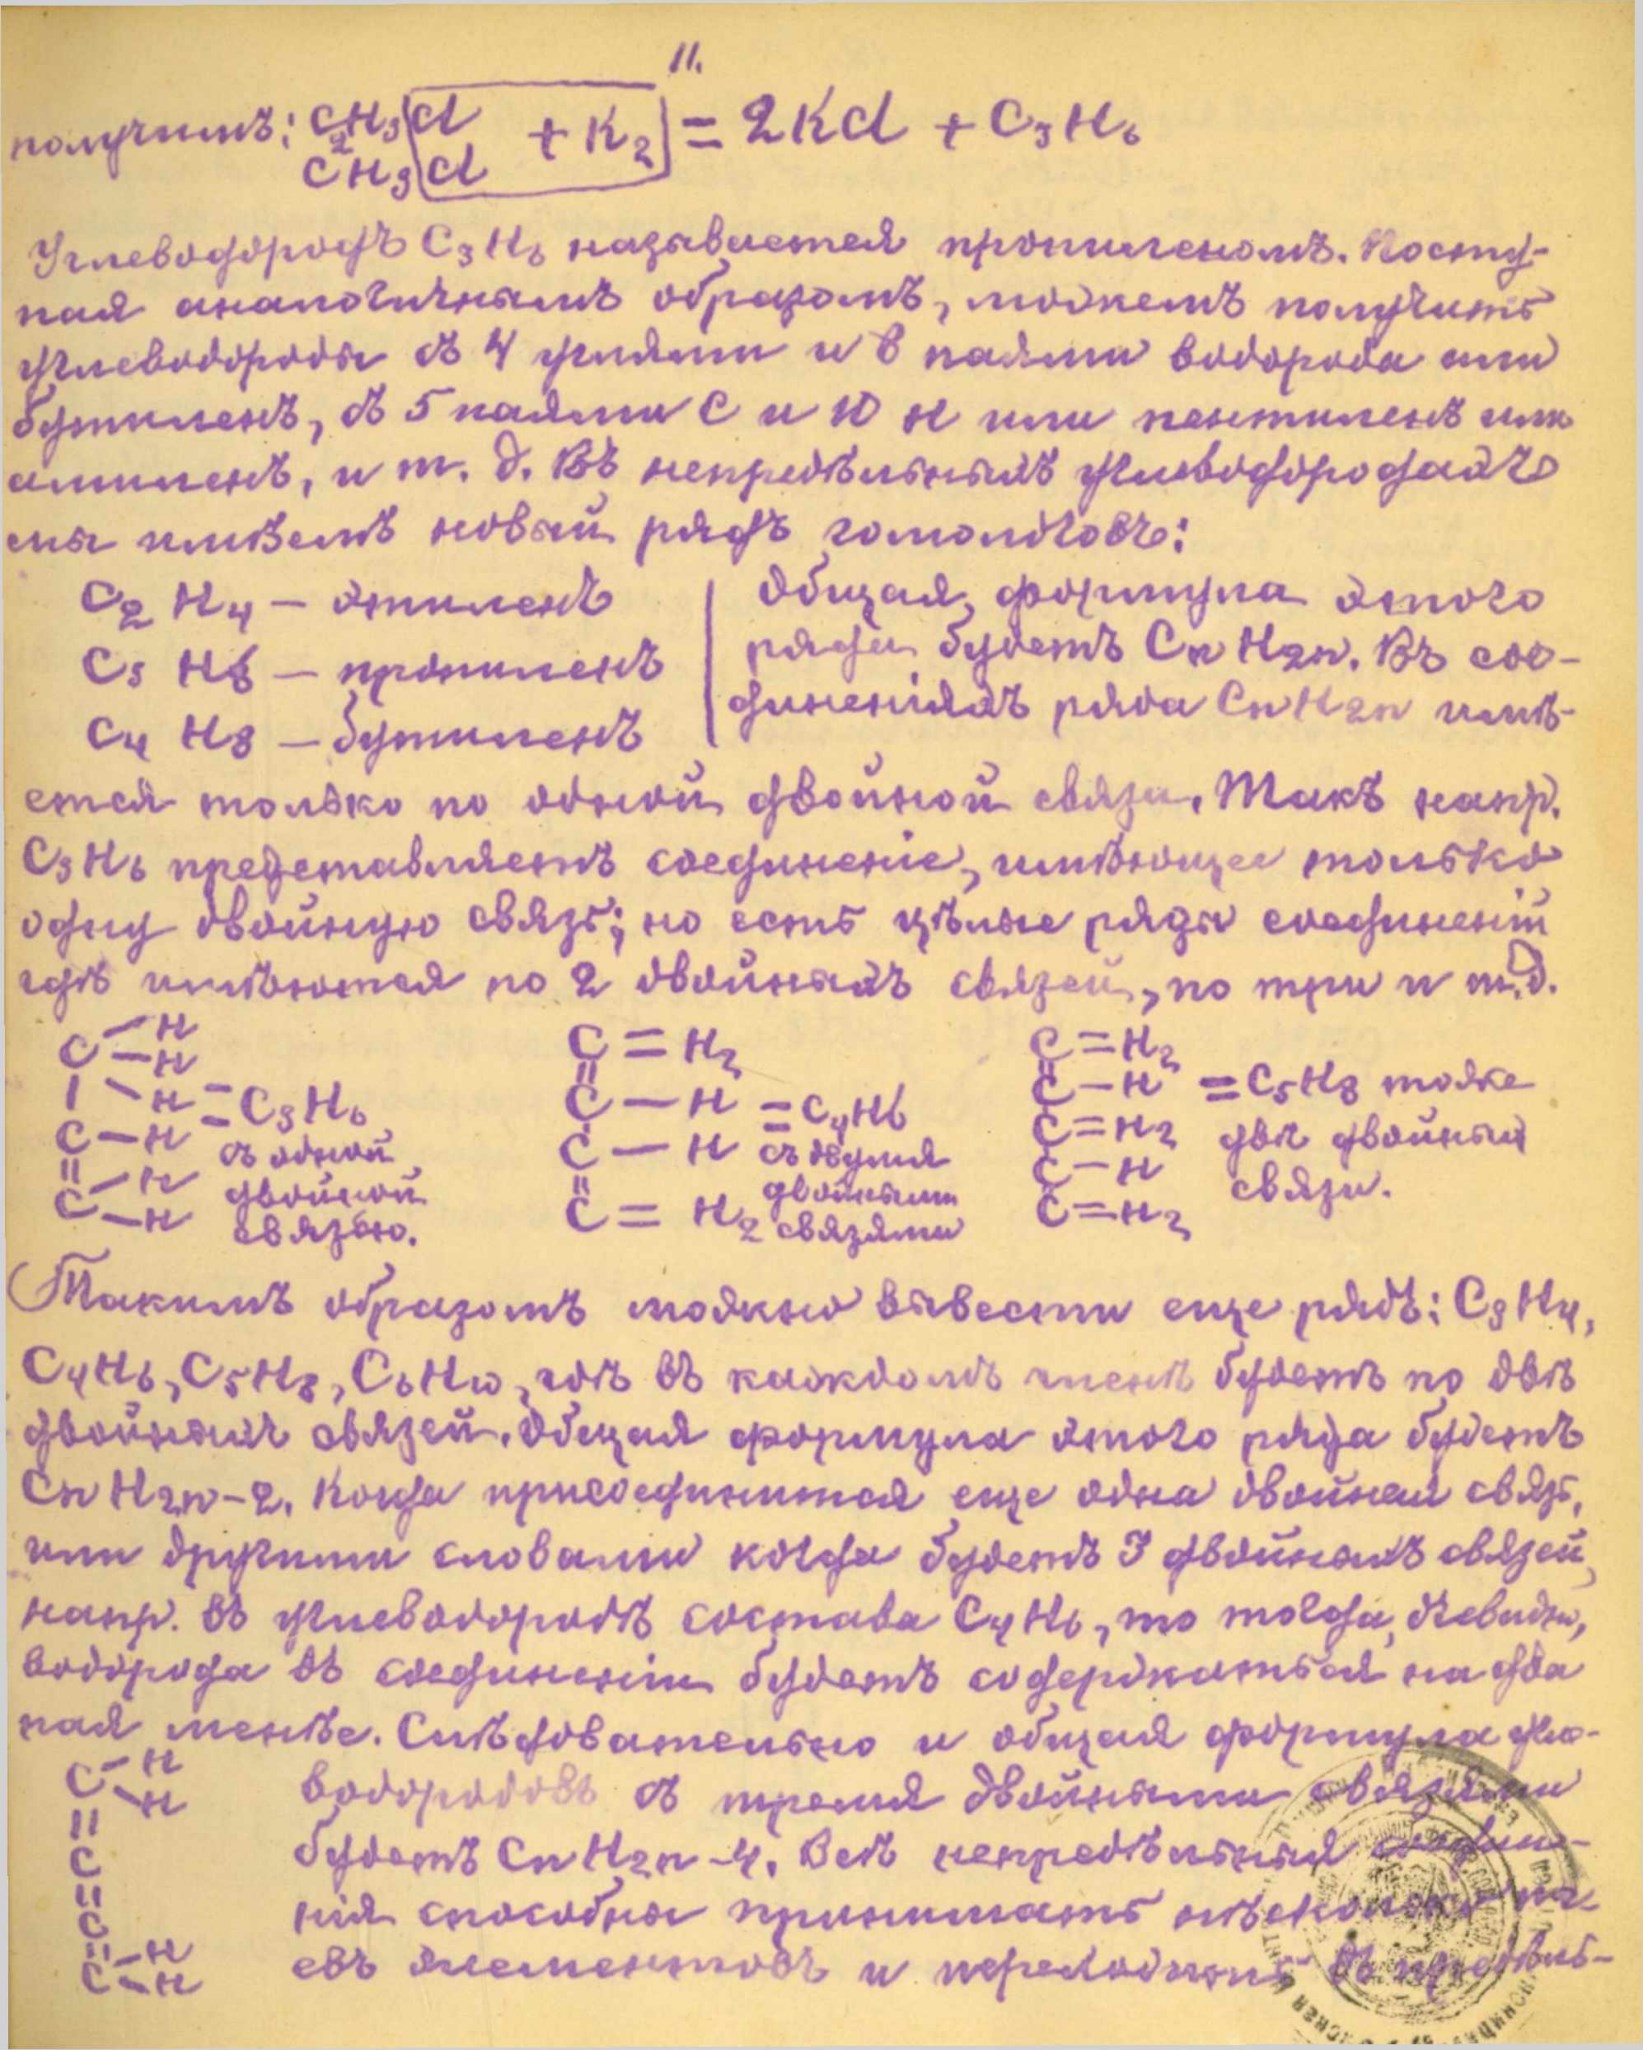 11.
получимъ: C₂H₃Cl + K₂ = 2KCl + C₃H₆
CH₃Cl
Углеводородъ C₃H₆ называется пропиленомъ. Посту-
пая аналогичнымъ образомъ, можемъ получить
углеводороды съ 4 углями и 8 паями водорода или
бутиленъ, съ 5 паями C и 10 H или пентиленъ или
амиленъ, и т. д. Въ непредѣльныхъ углеводородахъ
мы имѣемъ новый рядъ гомологовъ:
C₂H₄ – этиленъ
C₃H₆ – пропиленъ
C₄H₈ – бутиленъ
Общая формула этого
ряда будетъ CnH2n. Въ сое-
диненіяхъ ряда CnH2n имѣ-
ется только по одной двойной связи. Такъ напр.
C₃H₆ представляетъ соединеніе, имѣющее только
одну двойную связь; но есть цѣлые ряды соединеній
гдѣ имѣются по 2 двойныхъ связей, по три и т.д.
C – H
– H
| – H = C₃H₆
C – H съ одной
|| – H двойной
C – H связью.
C = H₂
||
C – H = C₄H₆
C – H съ двумя
|| двойными
C = H₂ связями
C = H₂
||
C – H = C₅H₈ тоже
C = H₂ двѣ двойныя
C – H связи.
C = H₂
Такимъ образомъ можно вывести еще рядъ: C₃H₄,
C₄H₆, C₅H₈, C₆H₁₀, гдѣ въ каждомъ членѣ будетъ по двѣ
двойныхъ связей. Общая формула этого ряда будетъ
CnH2n-2. Когда присоединится еще одна двойная связь,
или другими словами когда будетъ 3 двойныхъ связей,
напр. въ углеводородѣ состава C₄H₆, то тогда, очевидно,
водорода въ соединеніи будетъ содержаться на два
пая менѣе. Слѣдовательно и общая формула угле-
водородовъ съ тремя двойными связями
будетъ CnH2n-4. Всѣ непредѣльныя соедине-
нія способны принимать нѣсколько па-
евъ элементовъ и переходить въ предѣль-
C – H
– H
||
C
||
C
|| – H
C – H